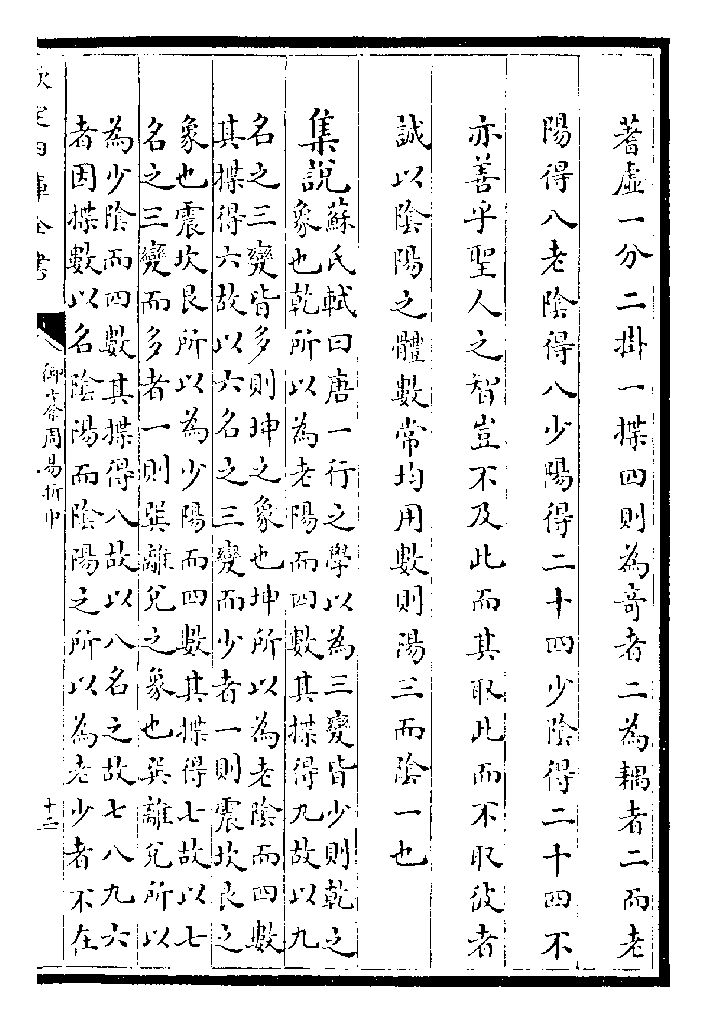 蓍虛一分二掛一揲四則為奇者二為耦者二而老
陽得八老陰得八少陽得二十四少陰得二十四不
亦善乎聖人之智豈不及此而其取此而不取彼者
誠以陰陽之體數常均用數則陽三而陰一也
集說
蘇氏軾曰唐一行之學以為三變皆少則乾之
象也乾所以為老陽而四數其揲得九故以九
名之三變皆多則坤之象也坤所以為老陰而四數
其揲得六故以六名之三變而少者一則震坎艮之
象也震坎艮所以為少陽而四數其揲得七故以七
名之三變而多者一則巽離兌之象也巽離兌所以
為少陰而四數其揲得八故以八名之故七八九六
者因揲數以名陰陽而陰陽之所以為老少者不在
欽定四庫全書
御纂周易折中
十二